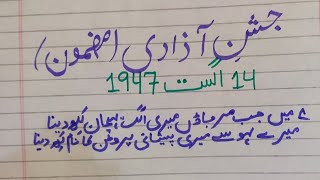 جشنِ آزادی (مضمون)
14 اگست 1947
میں جب مر جاؤں میری الگ پہچان لکھ دینا
میرے لہو سے میری پیشانی پر وطن کا نام لکھ دینا